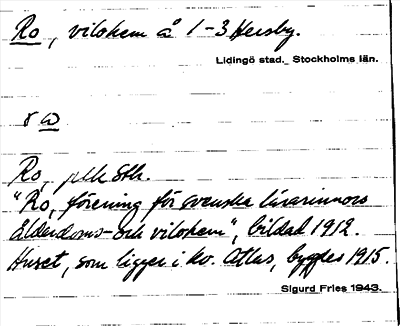 Ro, vilohem å 1-3 Hersby.
Lidingö stad. Stockholms län.
Ro,
"Ro, förening för svenska lärarinnors
ålderdoms- och vilohem", bildad 1912.
Huset, som ligger i kv. Atlas, byggdes 1915.
Sigurd Fries 1943.